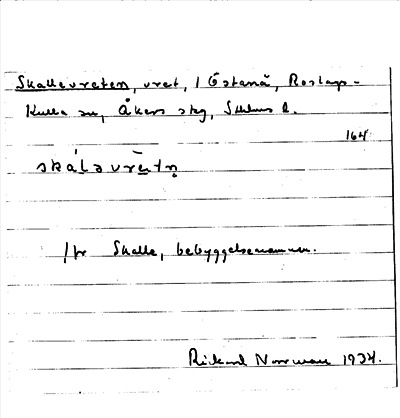 Skallevreten, vret, i Östanå, Roslags-
Kulla sn, Åkers skg, Sthlms l.
164
skálavrètṇ
Jfr Skalle, bebyggelsenamn.
Rickard Norrman 1934.